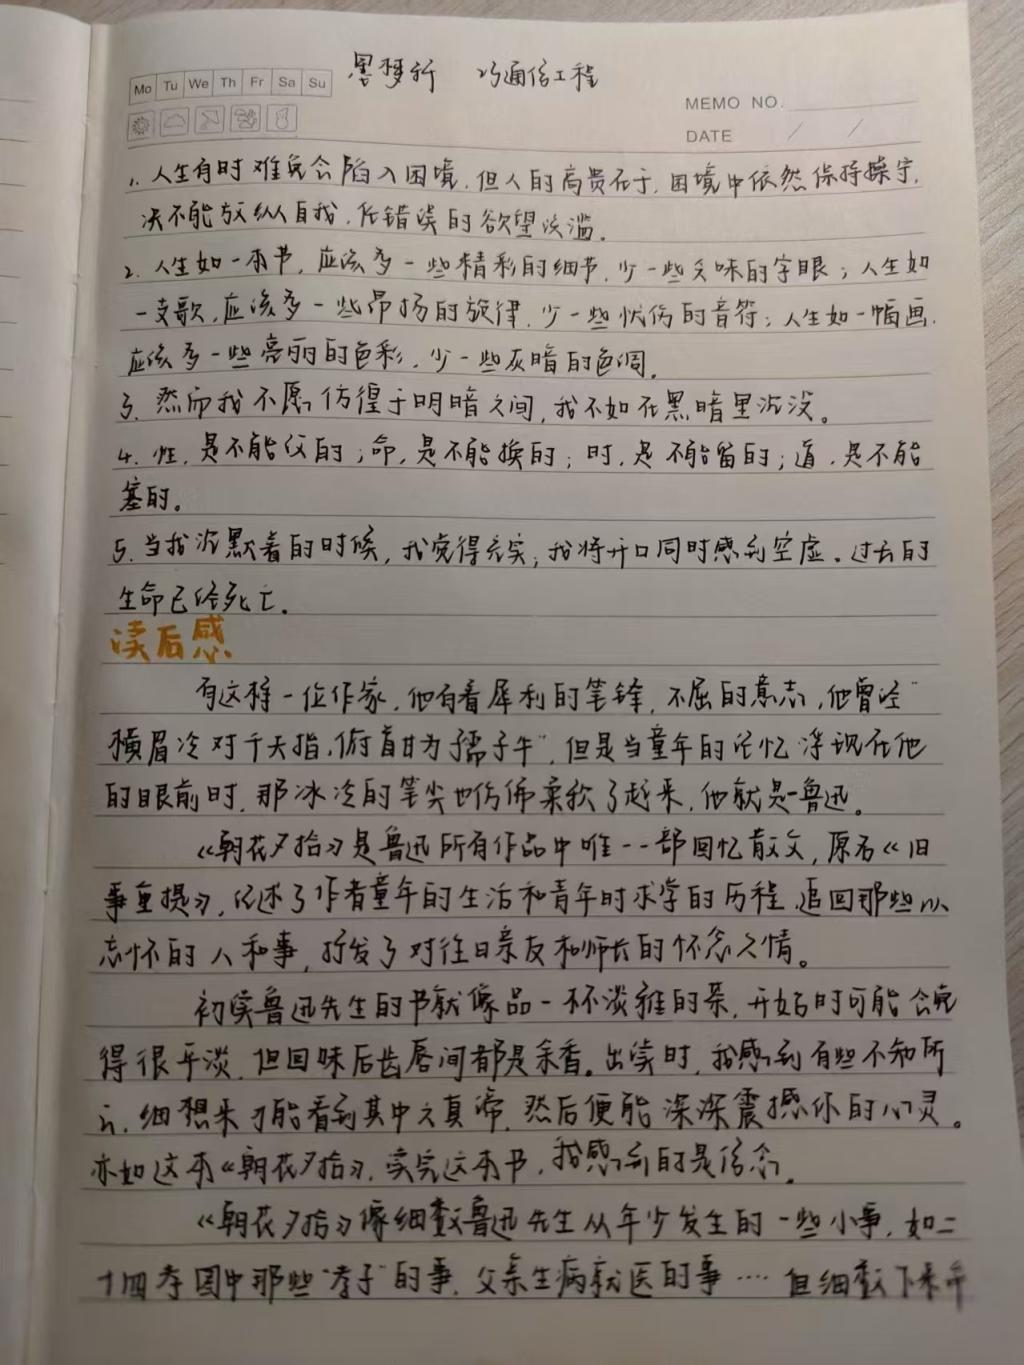 墨梦行 25通信工程
Mo Tu We Th Fr Sa Su
MEMO NO.
DATE / /
1. 人生有时难免会陷入困境,但人的高贵在于,困境中依然保持操守,
决不能放纵自我,任错误的欲望泛滥。
2. 人生如一本书,应该多一些精彩的细节,少一些乏味的字眼;人生如
一支歌,应该多一些昂扬的旋律,少一些忧伤的音符;人生如一幅画,
应该多一些亮丽的色彩,少一些灰暗的色调。
3. 然而我不愿彷徨于明暗之间,我不如在黑暗里沉没。
4. 性,是不能改的;命,是不能换的;时,是不能留的;道,是不能
塞的。
5. 当我沉默着的时候,我觉得充实;我将开口同时感到空虚。过去的
生命已经死亡。
读后感
有这样一位作家,他有着犀利的笔锋,不屈的意志,他曾经"
横眉冷对千夫指,俯首甘为孺子牛",但是当童年的记忆浮现在他
的眼前时,那冰冷的笔尖也仿佛柔软了起来,他就是一鲁迅。
《朝花夕拾》是鲁迅所有作品中唯一一部回忆散文,原名《旧
事重提》,记述了作者童年的生活和青年时求学的历程,追回那些以
忘怀的人和事,抒发了对往日亲友和师长的怀念之情。
初读鲁迅先生的书就像品一杯淡雅的茶,开始时可能会觉
得很平淡,但回味后齿唇间都是余香。出读时,我感到有些不知所
云,细想来才能看到其中之真谛,然后便能深深震撼你的心灵。
亦如这本《朝花夕拾》,读完这本书,我感到的是信念。
《朝花夕拾》像细数鲁迅先生从年少发生的一些小事,如二
十四孝图中那些"孝子"的事,父亲生病就医的事……但细数下来